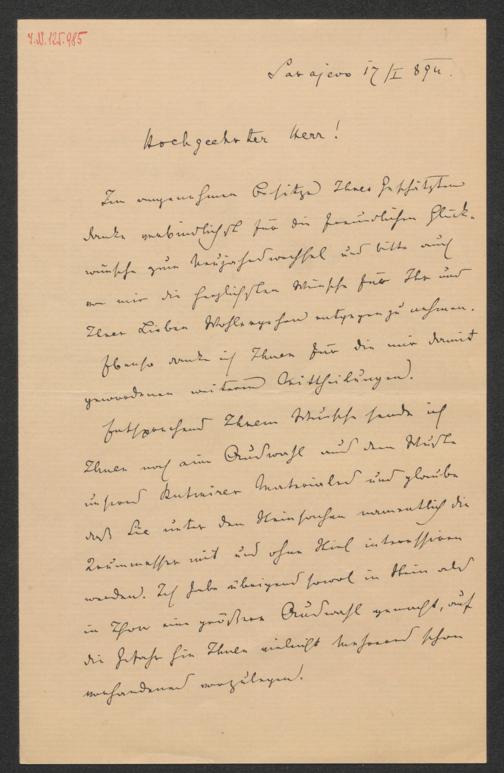 I.N. 125.985
Sarajevo 17/I 894.
Hochgeehrter Herr!
Im angenehmen Besitze Ihres Geschätzten
danke verbindlichst für die freundlichen Glück-
wünsche zum Neujahrswechsel und bitte auch
von mir die herzlichsten Wünsche für Ihr und
Ihrer Lieben Wohlergehen entgegen zu nehmen.
Ebenso danke ich Ihnen für die mir damit
gewordenen weiteren Mittheilungen.
Entsprechend Ihrem Wunsche sende ich
Ihnen noch eine Auswahl aus dem Wuste
unseres Butmirer Materiales und glaube
daß Sie unter den Steinsachen namentlich die
Krummesser mit und ohne Stiel interessiren
werden. Ich habe übrigens sowol in Stein als
in Thon eine größere Auswahl gemacht, auf
die Gefahr hin Ihnen vielleicht Mehreres schon
vorhandenes vorzulegen.